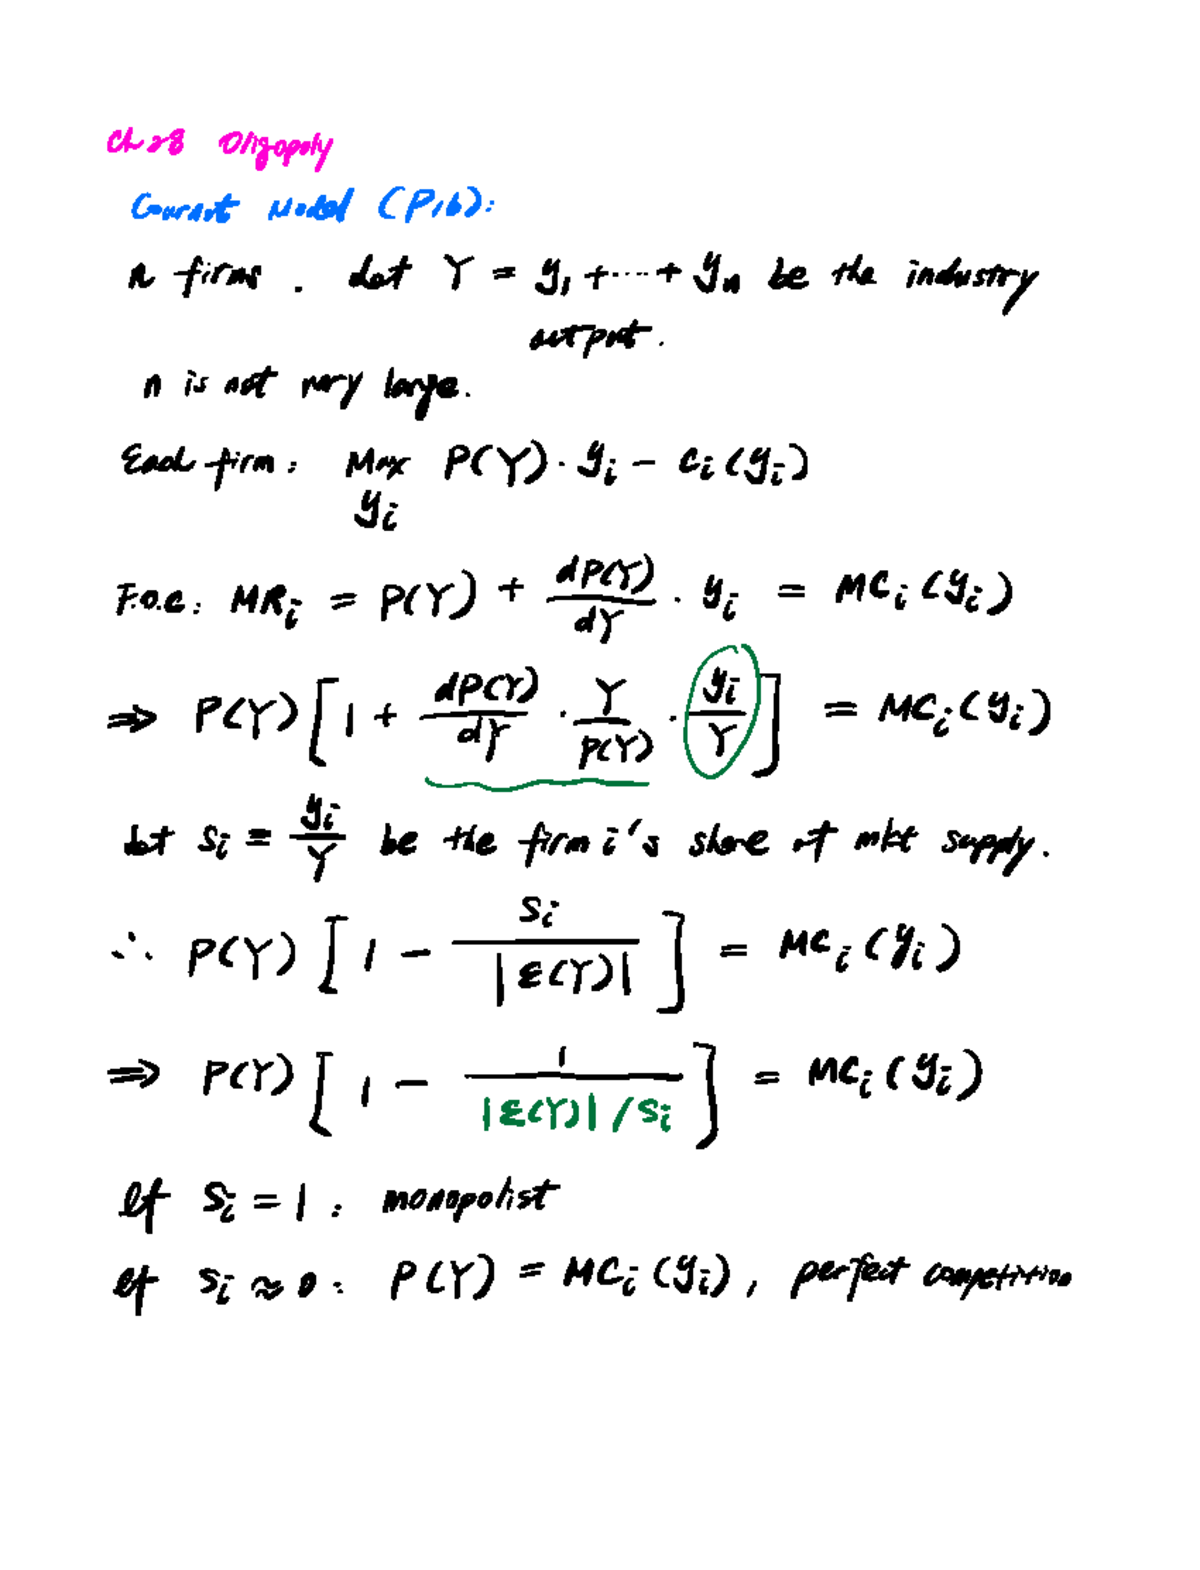 Ch 28 Oligopoly
Cournot Model (P16):
n firms. Let Y = y₁ + ···· + yₙ be the industry
output.
n is not very large.
Each firm: Max P(Y) · yᵢ − cᵢ(yᵢ)
yᵢ
F.o.c: MRᵢ = P(Y) + dP(Y)/dY · yᵢ = MCᵢ(yᵢ)
⇒ P(Y) [1 + dP(Y)/dY · Y/P(Y) · yᵢ/Y] = MCᵢ(yᵢ)
Let sᵢ ≡ yᵢ/Y be the firm i's share of mkt supply.
∴ P(Y) [1 − sᵢ/|ε(Y)|] = MCᵢ(yᵢ)
⇒ P(Y) [1 − 1/(|ε(Y)|/sᵢ)] = MCᵢ(yᵢ)
If sᵢ = 1 : monopolist
If sᵢ ≈ 0 : P(Y) = MCᵢ(yᵢ), perfect competition